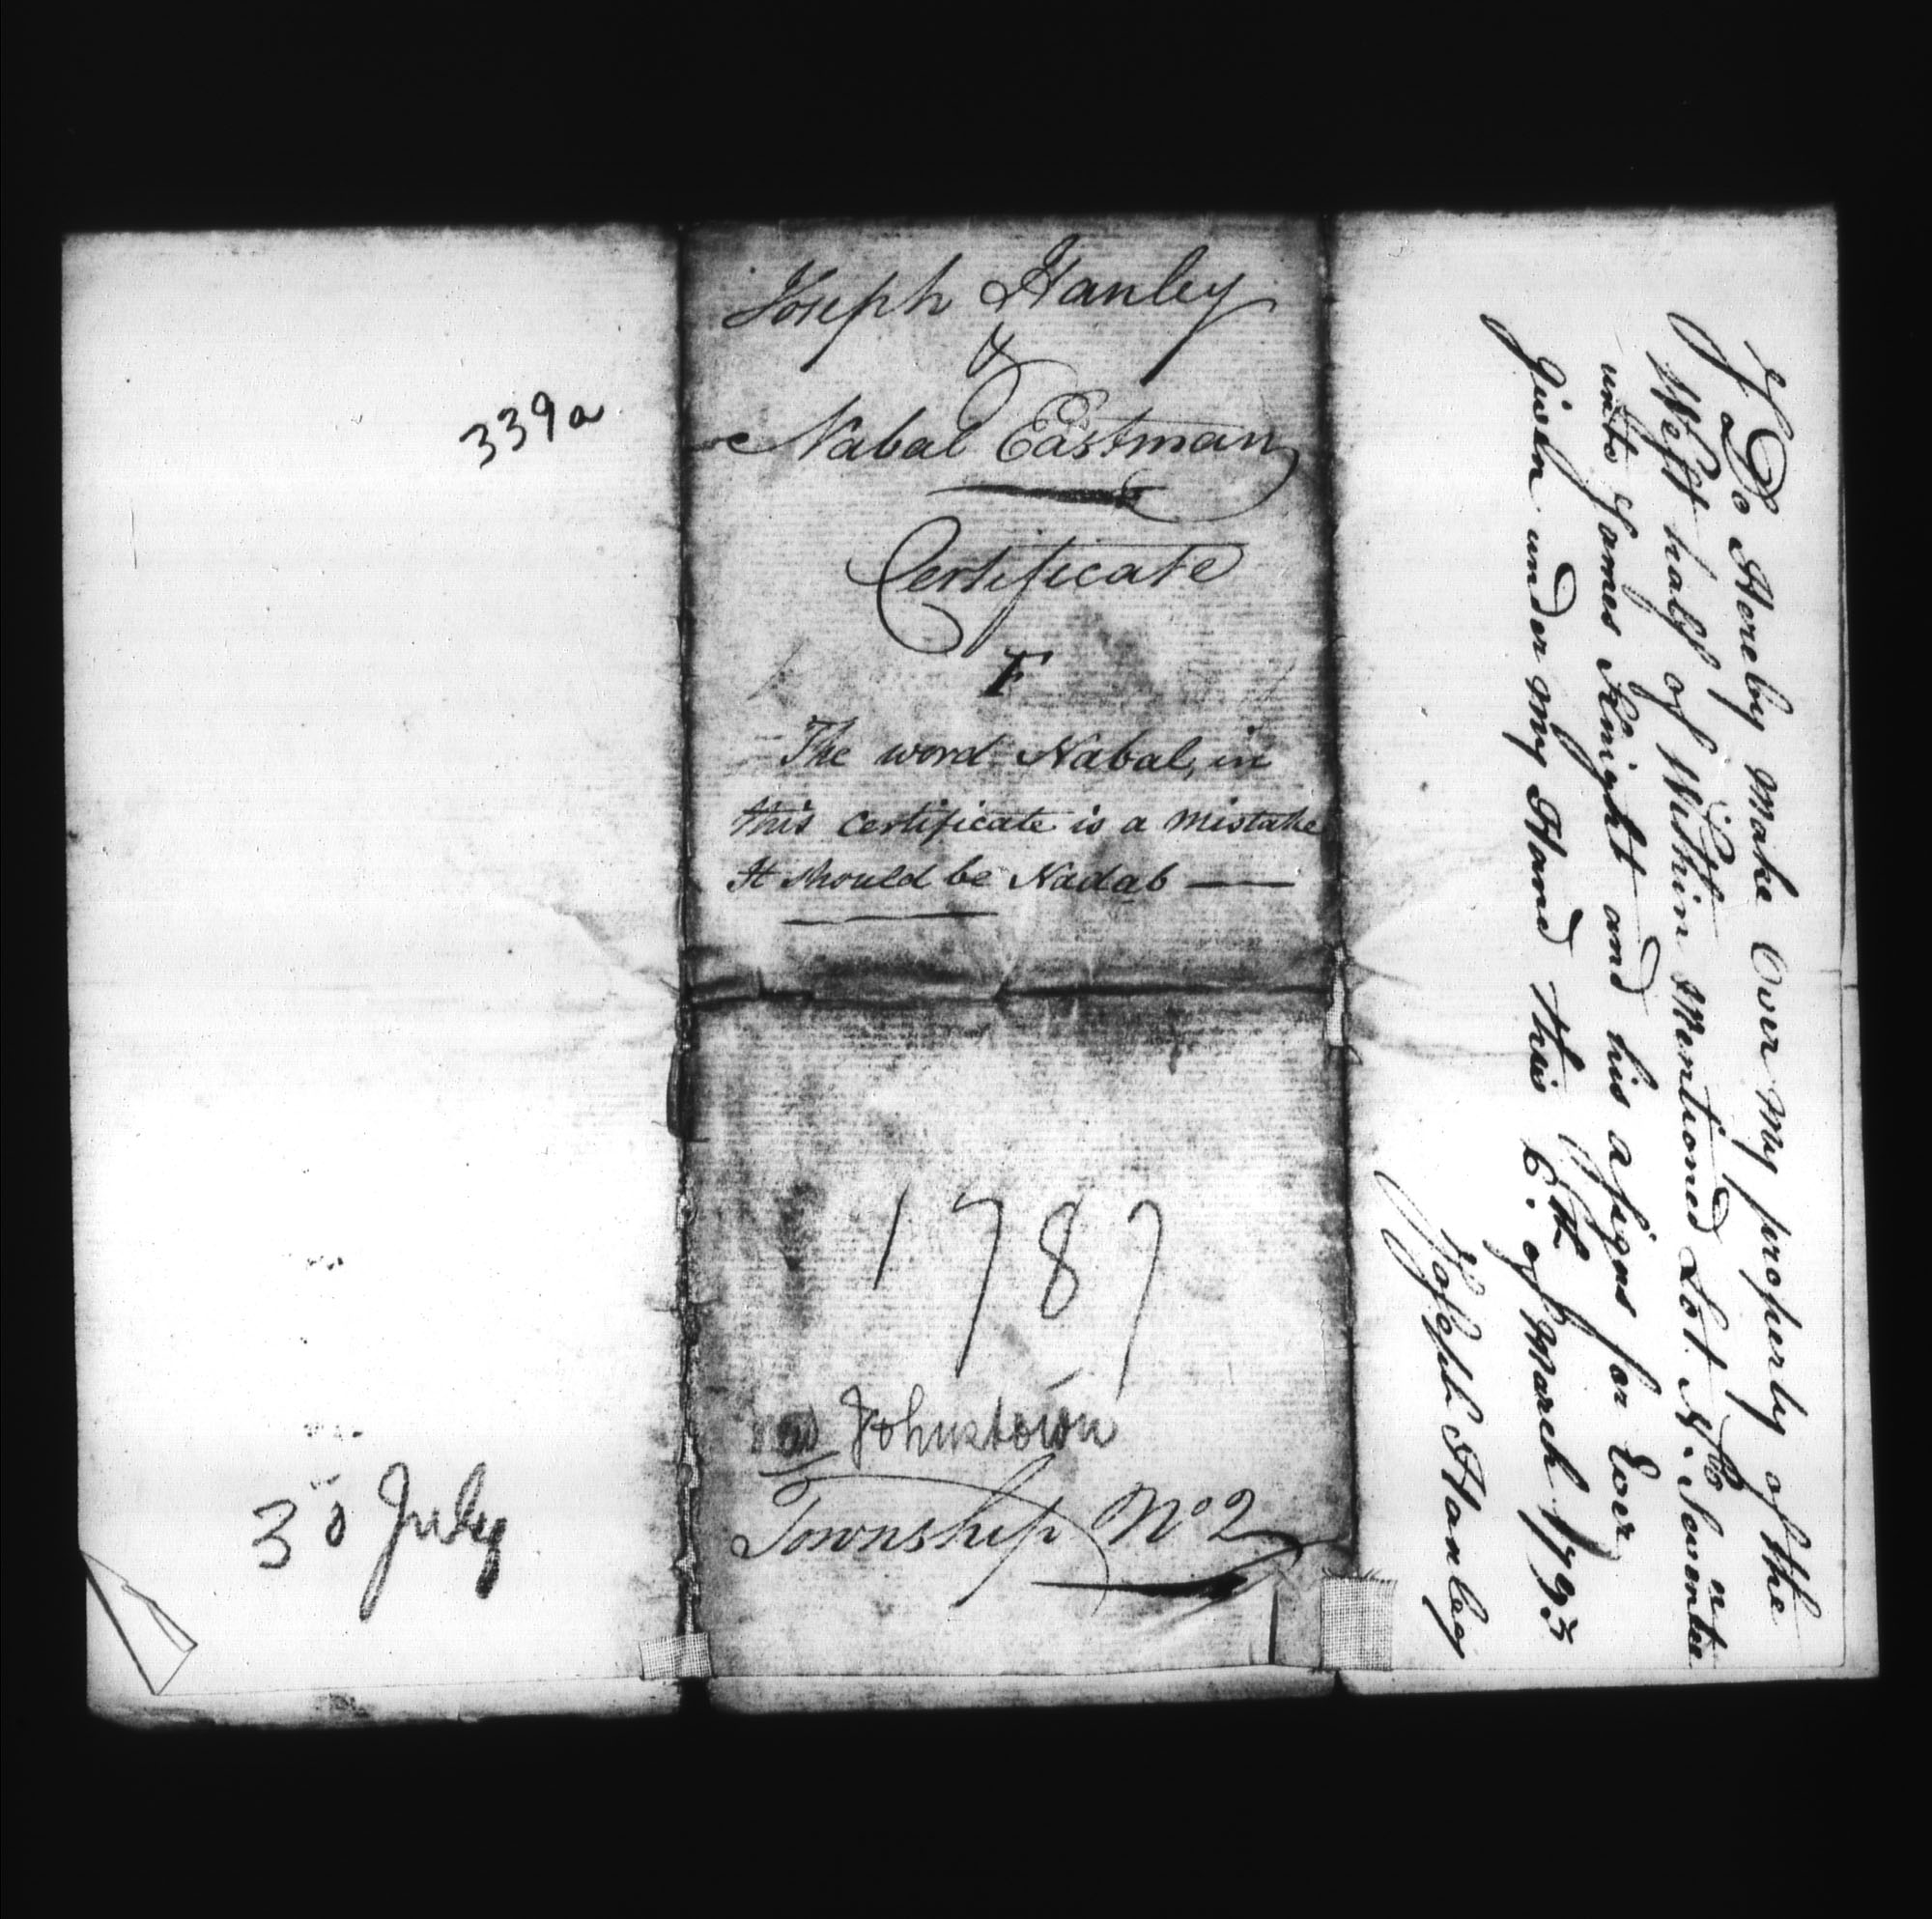 339a
30 July
Joseph Hanley
&
Nabal Eastman
Certificate
F
The word Nabal, in
this Certificate is a mistake
It should be Nadab —
1787
Johnstown
Township No 2
I Do Hereby make Over my property of the
West half of Within Mentioned Lot No Seventeen
unto James Knight and his assigns for Ever
Given under my Hand this 6th of March 1793
Joseph Hanley